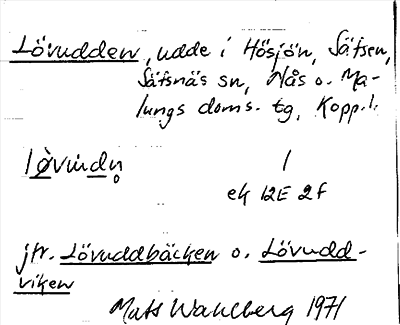 Lövudden, udde i Hösjön, Säfsen,
Säfsnäs sn, Nås o. Ma-
lungs doms. tg, Kopp. l.
lòvùdn̥ /
ek 12E 2f
jfr. Lövuddbäcken o. Lövudd-
viken
Mats Wahlberg 1971